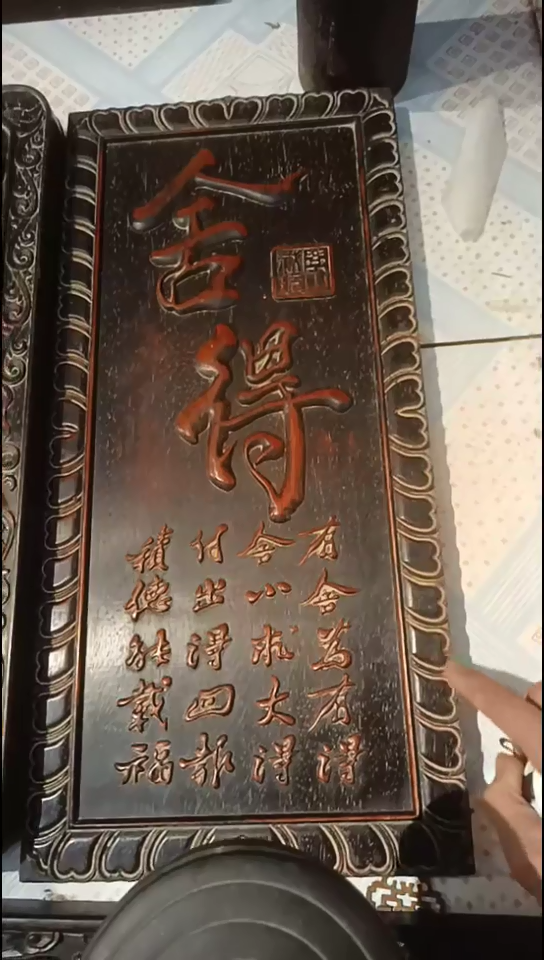 舍得
有舍為有得
舍小求大得
付出得回報
積德能載福